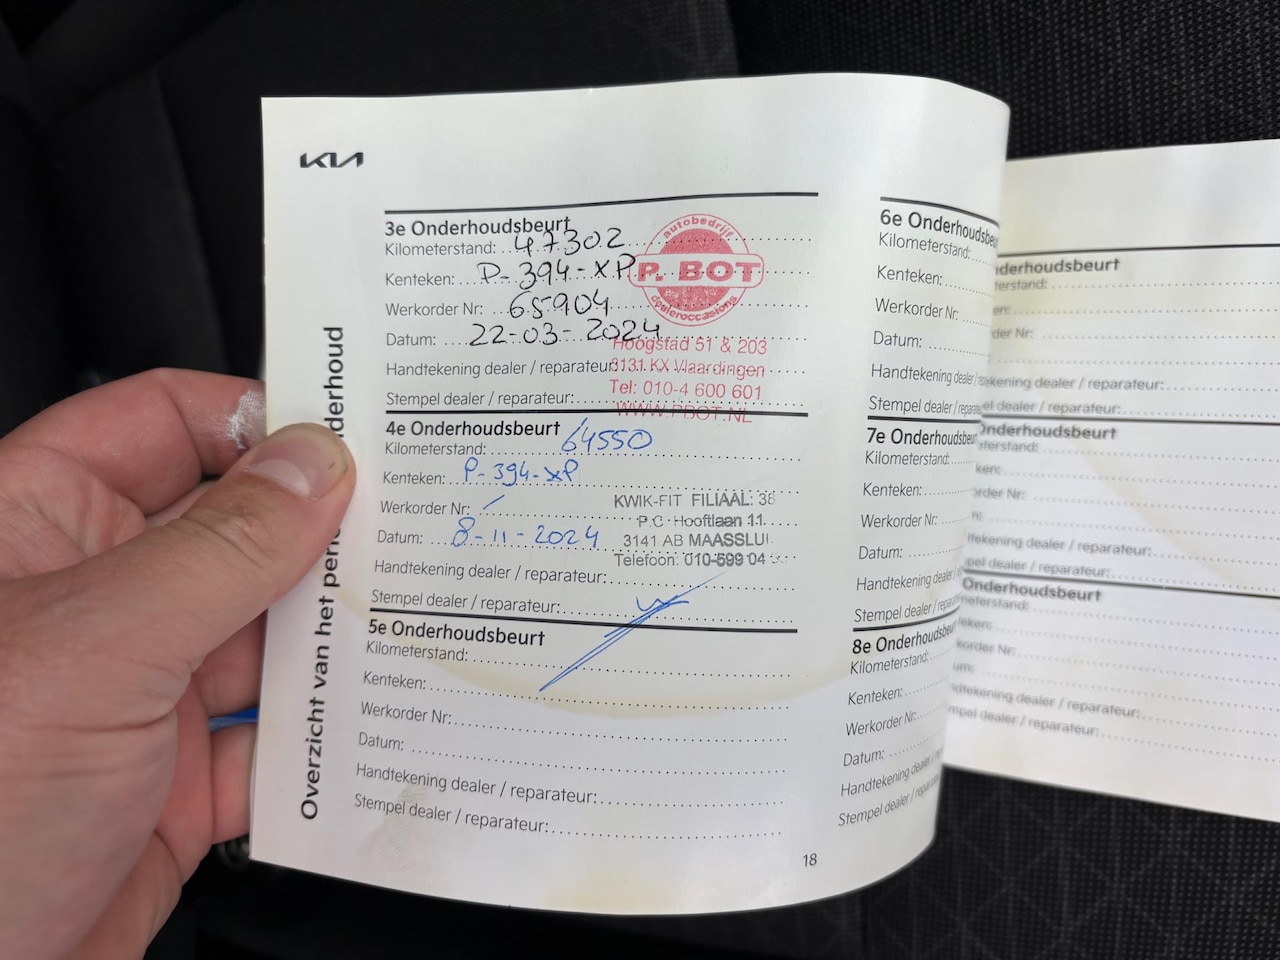 KIA
Overzicht van het
3e Onderhoudsbeurt
Kilometerstand: 47302
Kenteken: P-394-XP
Werkorder Nr: 65904
Datum: 22-03-2024
Handtekening dealer / reparateur:
Stempel dealer / reparateur:
autobedrijf
P. BOT
dealeroccasions
Hoogstad 51 & 203
3131 KX Vlaardingen
Tel: 010-4 600 601
WWW.PBOT.NL
4e Onderhoudsbeurt
Kilometerstand: 64550
Kenteken: P-394-XP
Werkorder Nr: /
Datum: 8-11-2024
Handtekening dealer / reparateur:
Stempel dealer / reparateur:
KWIK-FIT FILIAAL: 38
P.C. Hooftlaan 11
3141 AB MAASSLUI
Telefoon: 010-599 04
5e Onderhoudsbeurt
Kilometerstand:
Kenteken:
Werkorder Nr:
Datum:
Handtekening dealer / reparateur:
Stempel dealer / reparateur:
18
6e Onderhoudsbeu
Kilometerstand:
Kenteken:
Werkorder Nr:
Datum:
Handtekening dealer /
Stempel dealer / repara
7e Onderhoudsbeu
Kilometerstand:
Kenteken:
Werkorder Nr:
Datum:
Handtekening dealer /
Stempel dealer / repa
8e Onderhoudsbeu
Kilometerstand:
Kenteken:
Werkorder Nr:
Datum:
Handtekening dealer /
Stempel dealer / repar
nderhoudsbeurt
terstand:
en:
der Nr:
ekening dealer / reparateur:
el dealer / reparateur:
Onderhoudsbeurt
terstand:
ken:
order Nr:
m:
tekening dealer / reparateur:
pel dealer / reparateur:
Onderhoudsbeurt
meterstand:
teken:
korder Nr:
um:
dtekening dealer / reparateur:
mpel dealer / reparateur: